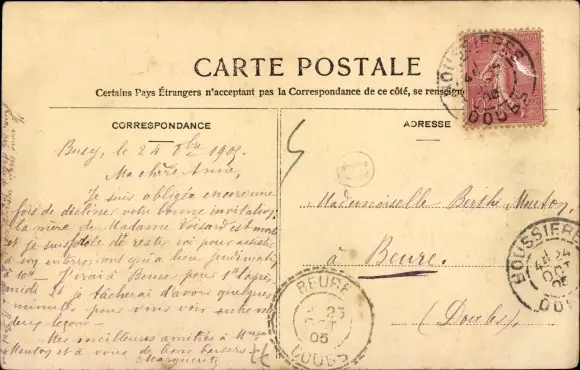 CARTE POSTALE
Certains Pays Étrangers n'acceptant pas la Correspondance de ce côté, se renseign
CORRESPONDANCE
Busy, le 24 8bre 1905.
Ma chère Amie,
Je suis obligée encore une
fois de décliner votre bonne invitation,
la mère de Madame Voisard est morte
et je suis de rester ici pour assister
à son enterrement qui a lieu
10h J'irai à Beure pour l'après
midi et je tâcherai d'avoir quelques
minutes pour vous voir entre
deux leçons.
Mes meilleures amitiés à Mme
Mouton et à vous de bons baisers
Marguerite
ADRESSE
Mademoiselle Berthe Mouton,
à Beure.
(Doubs)
BOUSSIERES
DOUBS
BOUSSIERE
24
OCT
05
DOU
BEURE
25
OCT
05
DOUBS